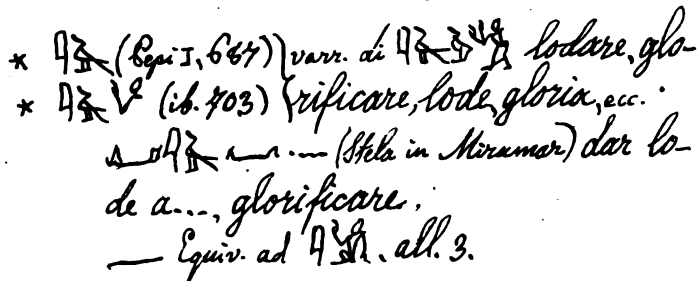 * (Pepi I, 687) } varr. di lodare, glo-
* (ib. 703) } rificare, lode, gloria, ecc.
(Stela in Miramar) dar lo-
de a..., glorificare.
— Equiv. ad . all. 3.